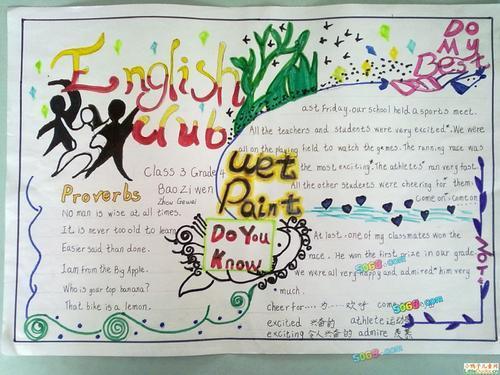 English
Club
DO
My
Best
Class 3 Grade 4
Bao Zi wen
Zhou Gewei
Proverbs
No man is wise at all times.
It is never too old to learn
Easier said than done.
I am from the Big Apple.
Who is your top banana?
That bike is a lemon.
wet
Paint
Do You
Know
ast Friday, our school held a sports meet.
All the teachers and students were very excited*. We were
all on the playing field to watch the games. The running race was
the most exciting*. The athletes* ran very fast.
All the other students were cheering for them.
Come on, come on
At last, one of my classmates won the
race. He won the first prize in our grade.
we were all very happy and admired* him very
much.
cheer for.... 为…欢呼 come
excited 兴奋的 athlete 运动
exciting 令人兴奋的 admire
5068.com
5068.com
5068.com
小鸭子儿童网